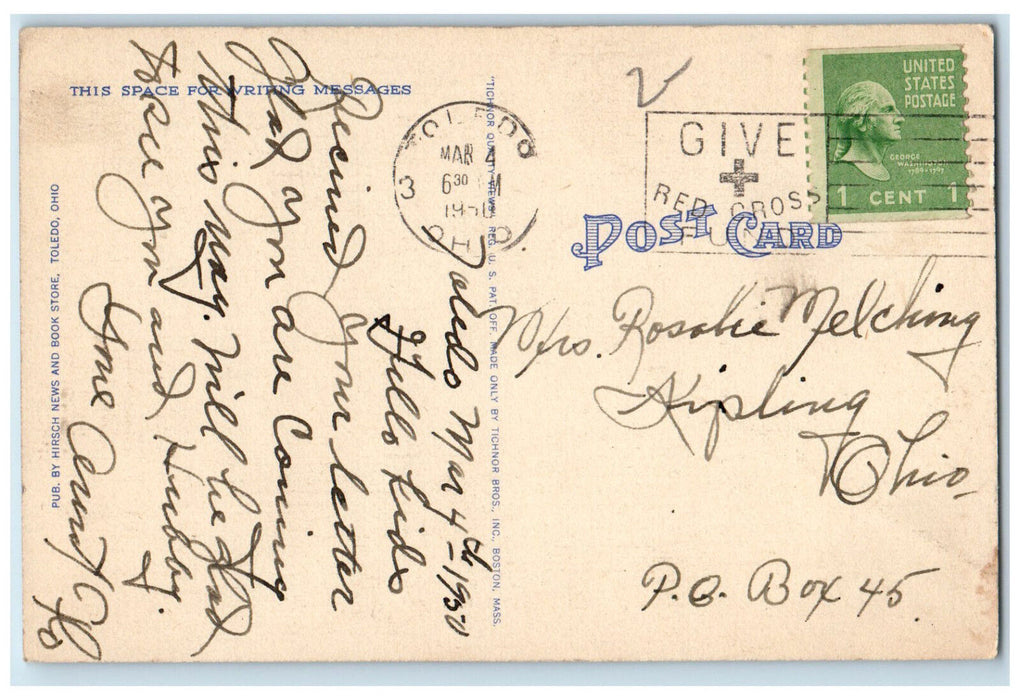 THIS SPACE FOR WRITING MESSAGES
Toledo Mar 4th-1950
Hello Kids
Recived your letter
Glad you are Coming
this way. Will be glad
to see you and Hubby.
Aunt
PUB. BY HIRSCH NEWS AND BOOK STORE, TOLEDO, OHIO
"TICHNOR QUALITY VIEWS," REG. U. S. PAT. OFF. MADE ONLY BY TICHNOR BROS., INC., BOSTON, MASS.
TOLEDO
MAR 4
6 30 PM
1950
3
OHIO
GIVE
RED CROSS
FUND
UNITED
STATES
POSTAGE
GEORGE
WASHINGTON
1789-1797
1 CENT 1
POST CARD
Mrs. Rosalie Melching
Kipling
Ohio
P.O. Box 45